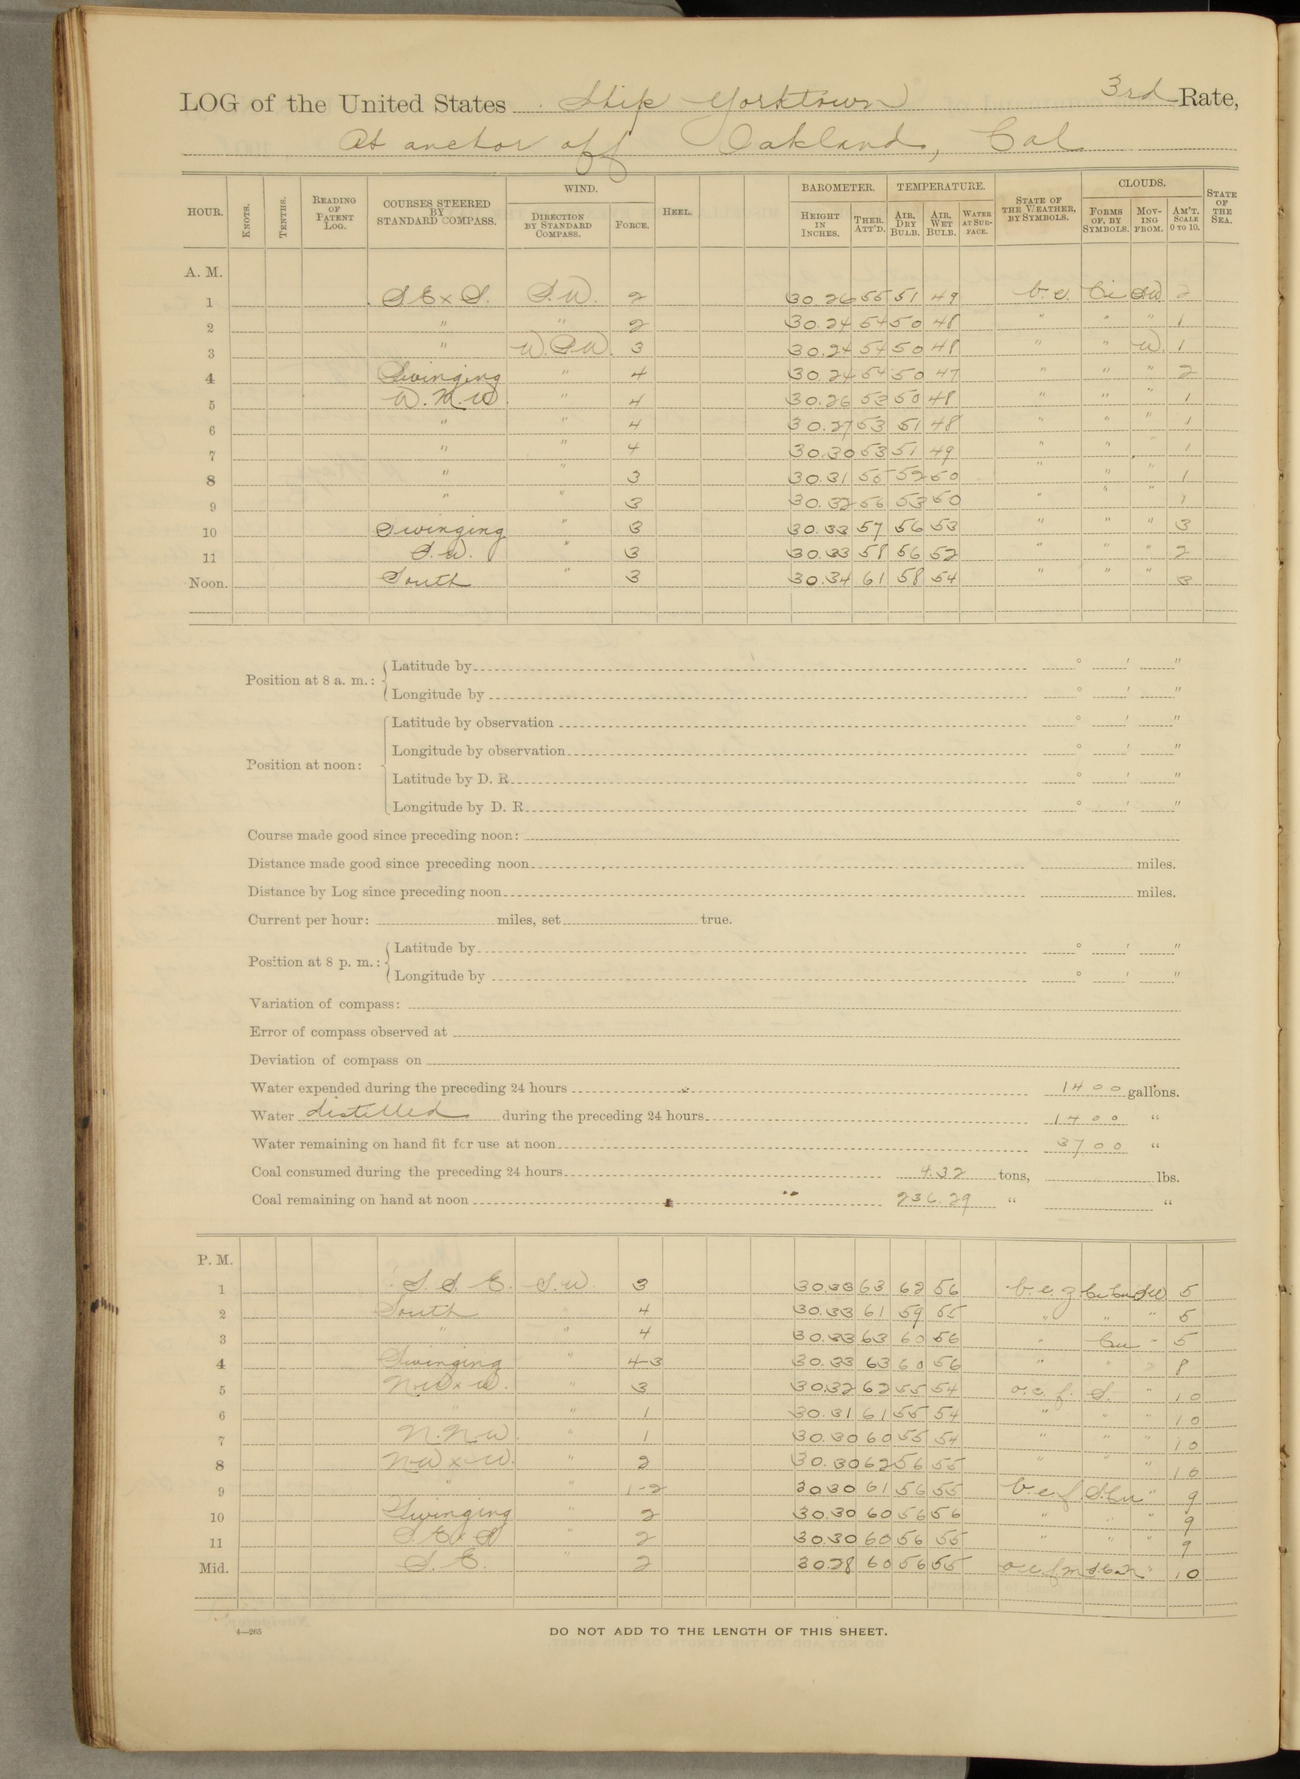 LOG of the United States Ship Yorktown 3rd Rate,
At anchor off Oakland, Cal
HOUR. KNOTS. TENTHS. READING OF PATENT LOG. COURSES STEERED BY STANDARD COMPASS. WIND. DIRECTION BY STANDARD COMPASS. FORCE. HEEL. BAROMETER. HEIGHT IN INCHES. THER. ATT'D. TEMPERATURE. AIR, DRY BULB. AIR, WET BULB. WATER AT SURFACE. STATE OF THE WEATHER, BY SYMBOLS. CLOUDS. FORMS OF, BY SYMBOLS. MOVING FROM. AM'T. SCALE 0 TO 10. STATE OF THE SEA.
A. M.
1 S E x S. S.W. 2 30.26 55 51 49 b.c. Ci SW 2
2 " " 2 30.24 54 50 48 " " " 1
3 " W.S.W. 3 30.24 54 50 48 " " W. 1
4 Swinging " 4 30.24 54 50 47 " " " 2
5 W.N.W " 4 30.26 53 50 48 " " " 1
6 " " 4 30.27 53 51 48 " " " 1
7 " " 4 30.30 53 51 49 " " 1
8 " " 3 30.31 55 52 50 " " " 1
9 " " 3 30.32 56 53 50 " " " 1
10 Swinging " 3 30.33 57 56 53 " " " 3
11 S.W. " 3 30.33 58 56 52 " " " 2
Noon. South " 3 30.34 61 58 54 " " " 3
Position at 8 a. m.: Latitude by ° ' "
Longitude by ° ' "
Position at noon: Latitude by observation ° ' "
Longitude by observation ° ' "
Latitude by D. R. ° ' "
Longitude by D. R. ° ' "
Course made good since preceding noon:
Distance made good since preceding noon miles.
Distance by Log since preceding noon miles.
Current per hour: miles, set true.
Position at 8 p. m.: Latitude by ° ' "
Longitude by ° ' "
Variation of compass:
Error of compass observed at
Deviation of compass on
Water expended during the preceding 24 hours 1400 gallons.
Water distilled during the preceding 24 hours 1400 "
Water remaining on hand fit for use at noon 3700 "
Coal consumed during the preceding 24 hours 4.32 tons, lbs.
Coal remaining on hand at noon 236.29 " "
P. M.
1 S.S.E. S.W. 3 30.33 63 62 56 b.c.z Ci Cu SW 5
2 South " 4 30.33 61 59 55 " " " 5
3 " " 4 30.33 63 60 56 " Cu " 5
4 Swinging " 4-3 30.33 63 60 56 " " " 8
5 NW x W. " 3 30.32 62 55 54 o.c.f. S. " 10
6 " " 1 30.31 61 55 54 " " " 10
7 N.N.W. " 1 30.30 60 55 54 " " " 10
8 NW x W. " 2 30.30 62 56 55 " " " 10
9 " " 1-2 30.30 61 56 55 b.c.f S.Cu " 9
10 Swinging " 2 30.30 60 56 56 " " " 9
11 S E x S " 2 30.30 60 56 55 " " " 9
Mid. S.E. " 2 30.28 60 56 55 o.c.f.m " 10
4—265
DO NOT ADD TO THE LENGTH OF THIS SHEET.